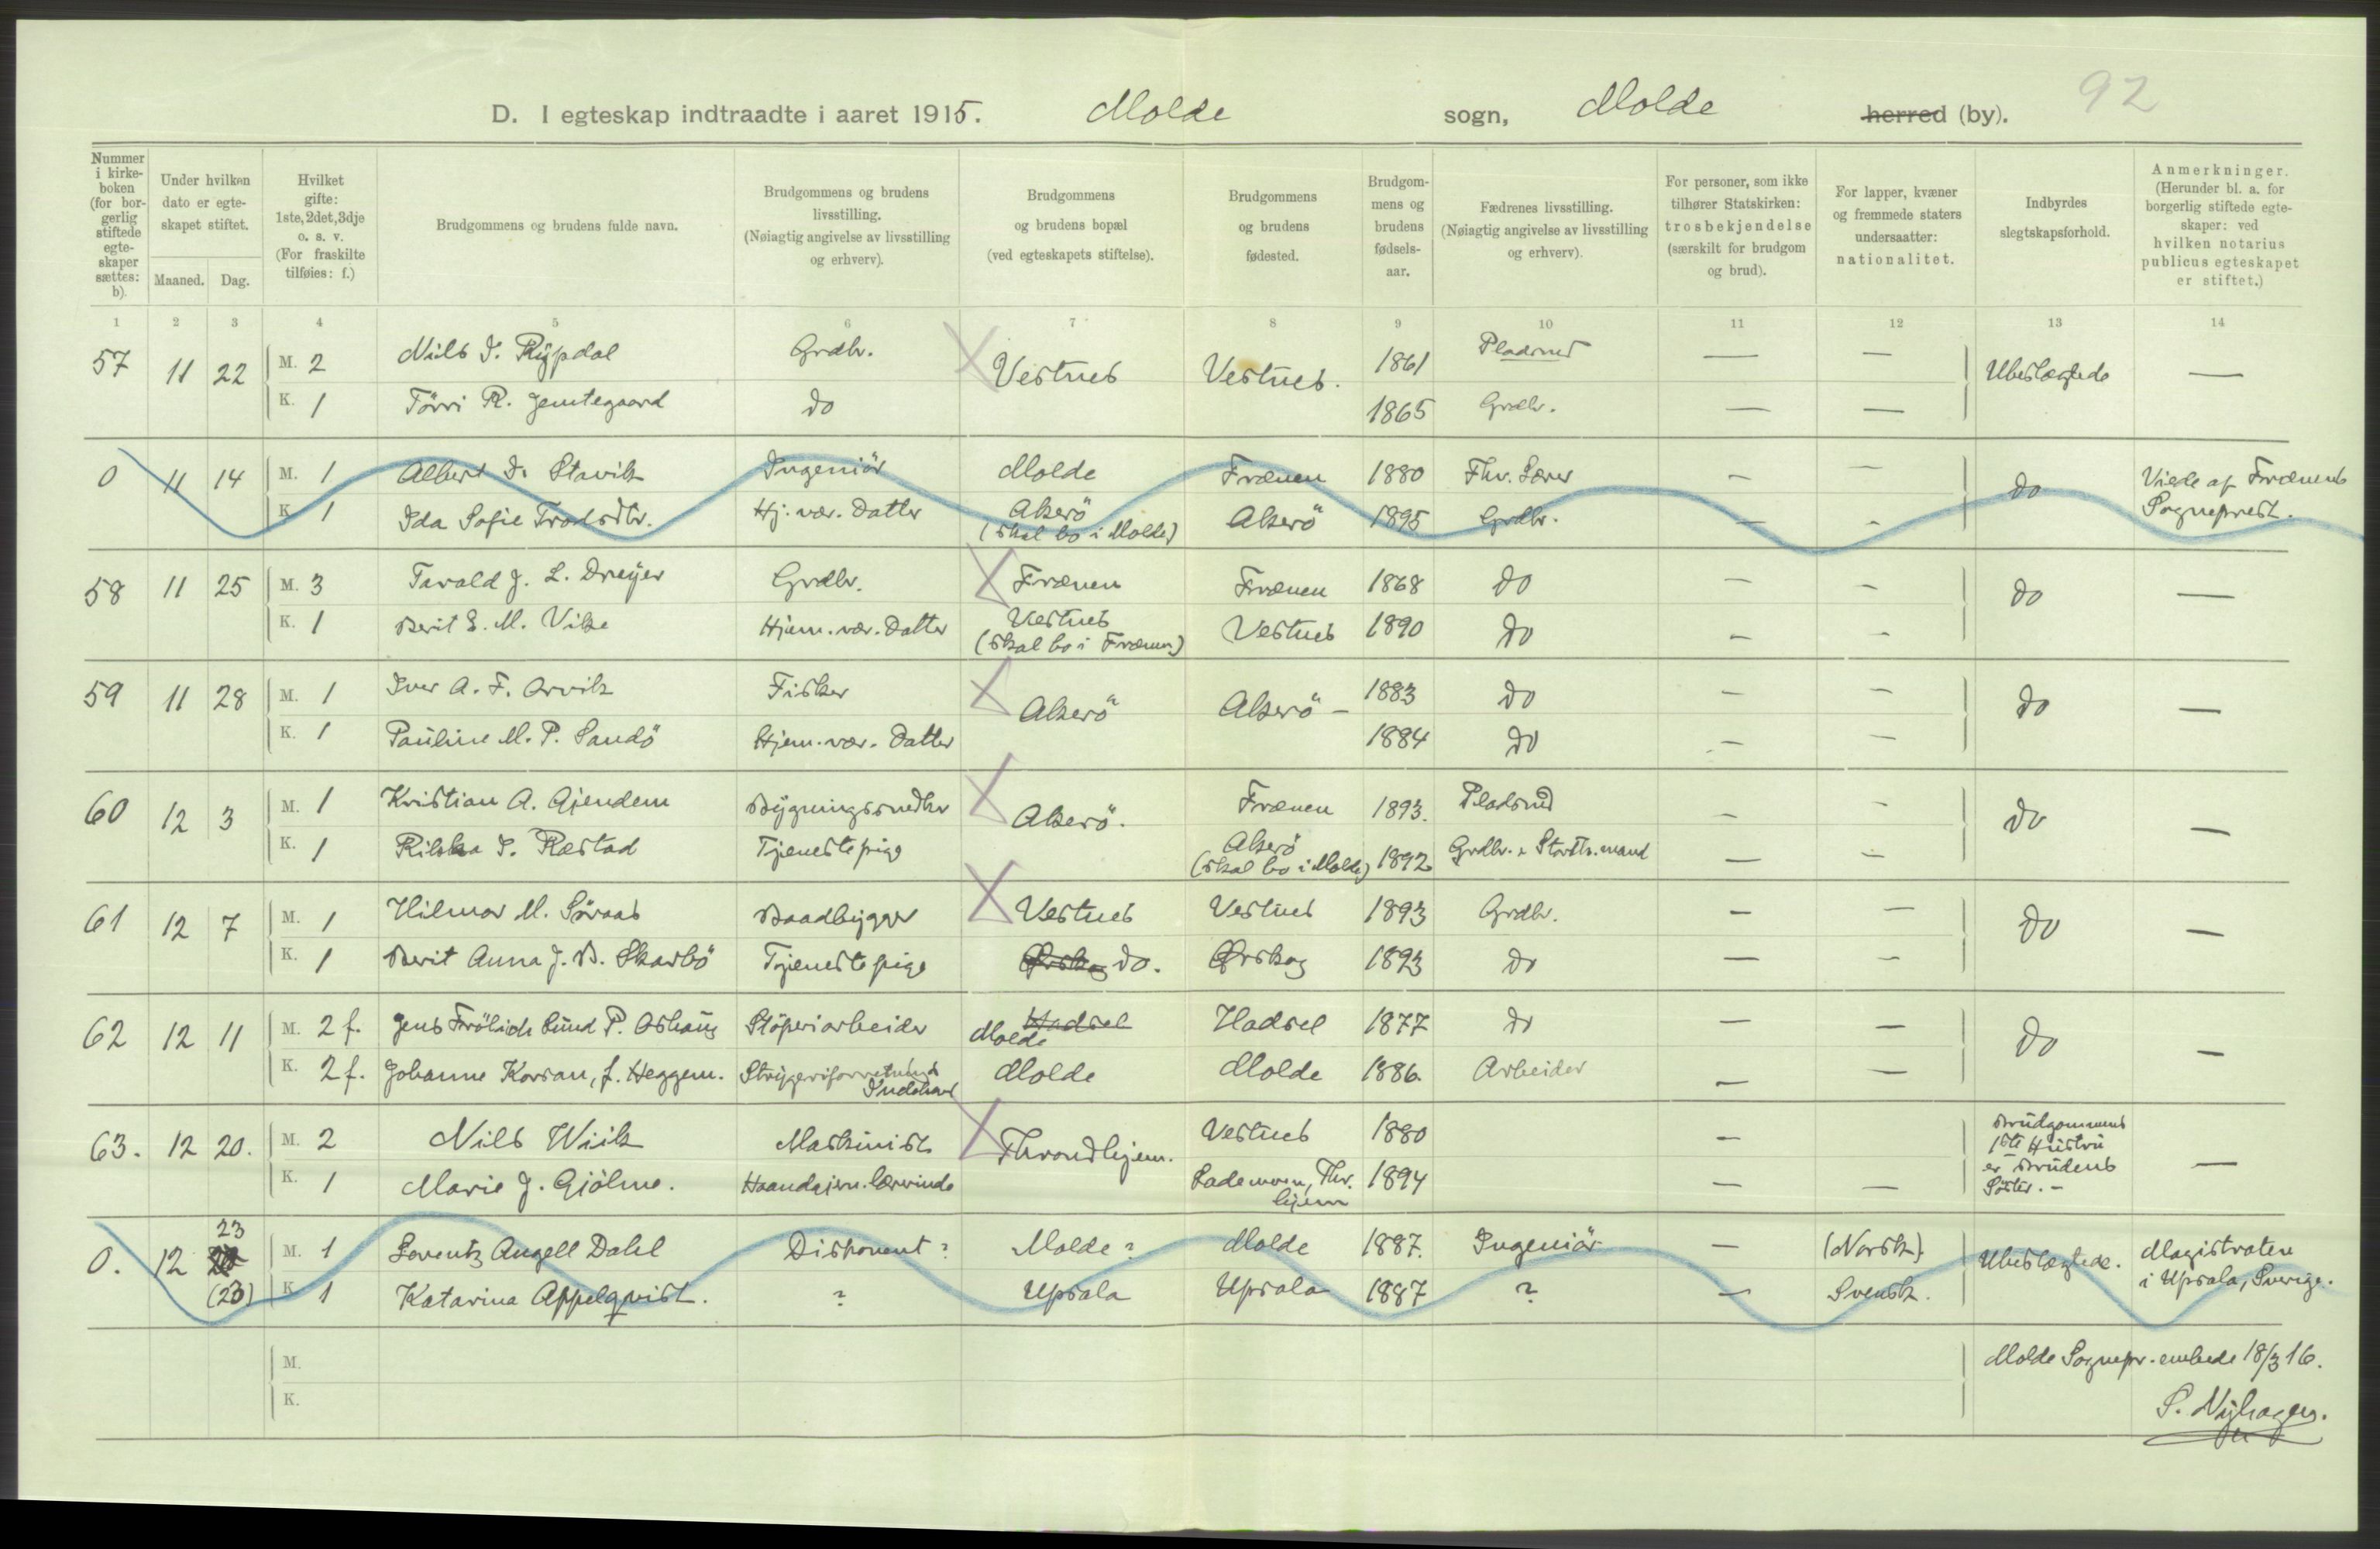 92
D. I egteskap indtraadte i aaret 1915. Molde sogn, Molde herred (by).
Nummer i kirkeboken (for borgerlig stiftede egteskaper sættes: b).
Under hvilken dato er egteskapet stiftet.
Maaned. Dag.
Hvilket gifte: 1ste, 2det, 3dje o. s. v. (For fraskilte tilføies: f.)
Brudgommens og brudens fulde navn.
Brudgommens og brudens livsstilling. (Nøiagtig angivelse av livsstilling og erhverv).
Brudgommens og brudens bopæl (ved egteskapets stiftelse).
Brudgommens og brudens fødested.
Brudgommens og brudens fødselsaar.
Fædrenes livsstilling. (Nøiagtig angivelse av livsstilling og erhverv).
For personer, som ikke tilhører Statskirken: trosbekjendelse (særskilt for brudgom og brud).
For lapper, kvæner og fremmede staters undersaatter: nationalitet.
Indbyrdes slegtskapsforhold.
Anmerkninger. (Herunder bl. a. for borgerlig stiftede egteskaper: ved hvilken notarius publicus egteskapet er stiftet.)
1 2 3 4 5 6 7 8 9 10 11 12 13 14
57 11 22 M. 2 Nils I. Rypdal Grdbr. Vestnes Vestnes. 1861 Pladsmd — — Ubeslægtede —
K. 1 Törri R. Jemtegaard do 1865 Grdbr. — —
0 11 14 M. 1 Albert I. Stavik Ingeniör Molde Frænen 1880 Fhv. Lærer — — do Viede af Frænens
K. 1 Ida Sofie Trodsdtr. Hj. vær. Datter Akerö (skal bo i Molde) Akerö 1895 Grdbr. — — Sogneprest.
58 11 25 M. 3 Tarald J. L. Dreyer Grdbr. Frænen Frænen 1868 do — — do —
K. 1 Berit E. M. Vike Hjem. vær. Datter Vestnes (skal bo i Frænen) Vestnes 1890 do — —
59 11 28 M. 1 Iver A. F. Orvik Fisker Akerö Akerö — 1883 do — — do —
K. 1 Pauline M. P. Sandö Hjem. vær. Datter 1884 do — —
60 12 3 M. 1 Kristian A. Gjendem Bygningssnedker Akerö. Frænen 1893. Pladsmd — — do —
K. 1 P.Ræstad Tjenestepige Akerö (skal bo i Molde) 1892 Grdbr. & Storth.mand — —
61 12 7 M. 1 Hilmar M. Söraas Baadbygger Vestnes Vestnes 1893 Grdbr. — — do —
K. 1 Berit Anna J. B. Skarbö Tjenestepige Ørskog do. Ørskog 1893 do — —
62 12 11 M. 2 f. Jens Frölich Sund P. Ashaug Stöperiarbeider Hadsel Molde Hadsel 1877 do — — do —
K. 2 f. Johanne Korsan, f. Heggem. Strygeriforretnings Indehaver Molde Molde 1886. Arbeider — —
63. 12 20. M. 2 Nils Wiik Maskinist Throndhjem. Vestnes 1880 — Brudgommens 1ste Hustru er Brudens Söster. — —
K. 1 Marie J. Gjölme. Haandgjern.lærerinde Lademoen, Thr.hjem 1894 — —
0. 12 23 (23) M. 1 Lorentz Angell Dahl Disponent? Molde? Molde 1887. Ingeniör — (Norsk) Ubeslægtede. Magistraten
K. 1 Katarina Appelqvist. ? Upsala Upsala 1887 ? — Svensk. i Upsala, Sverige.
M. Molde Sognepr.embede 18/3 16.
K. S. Nyhagen.